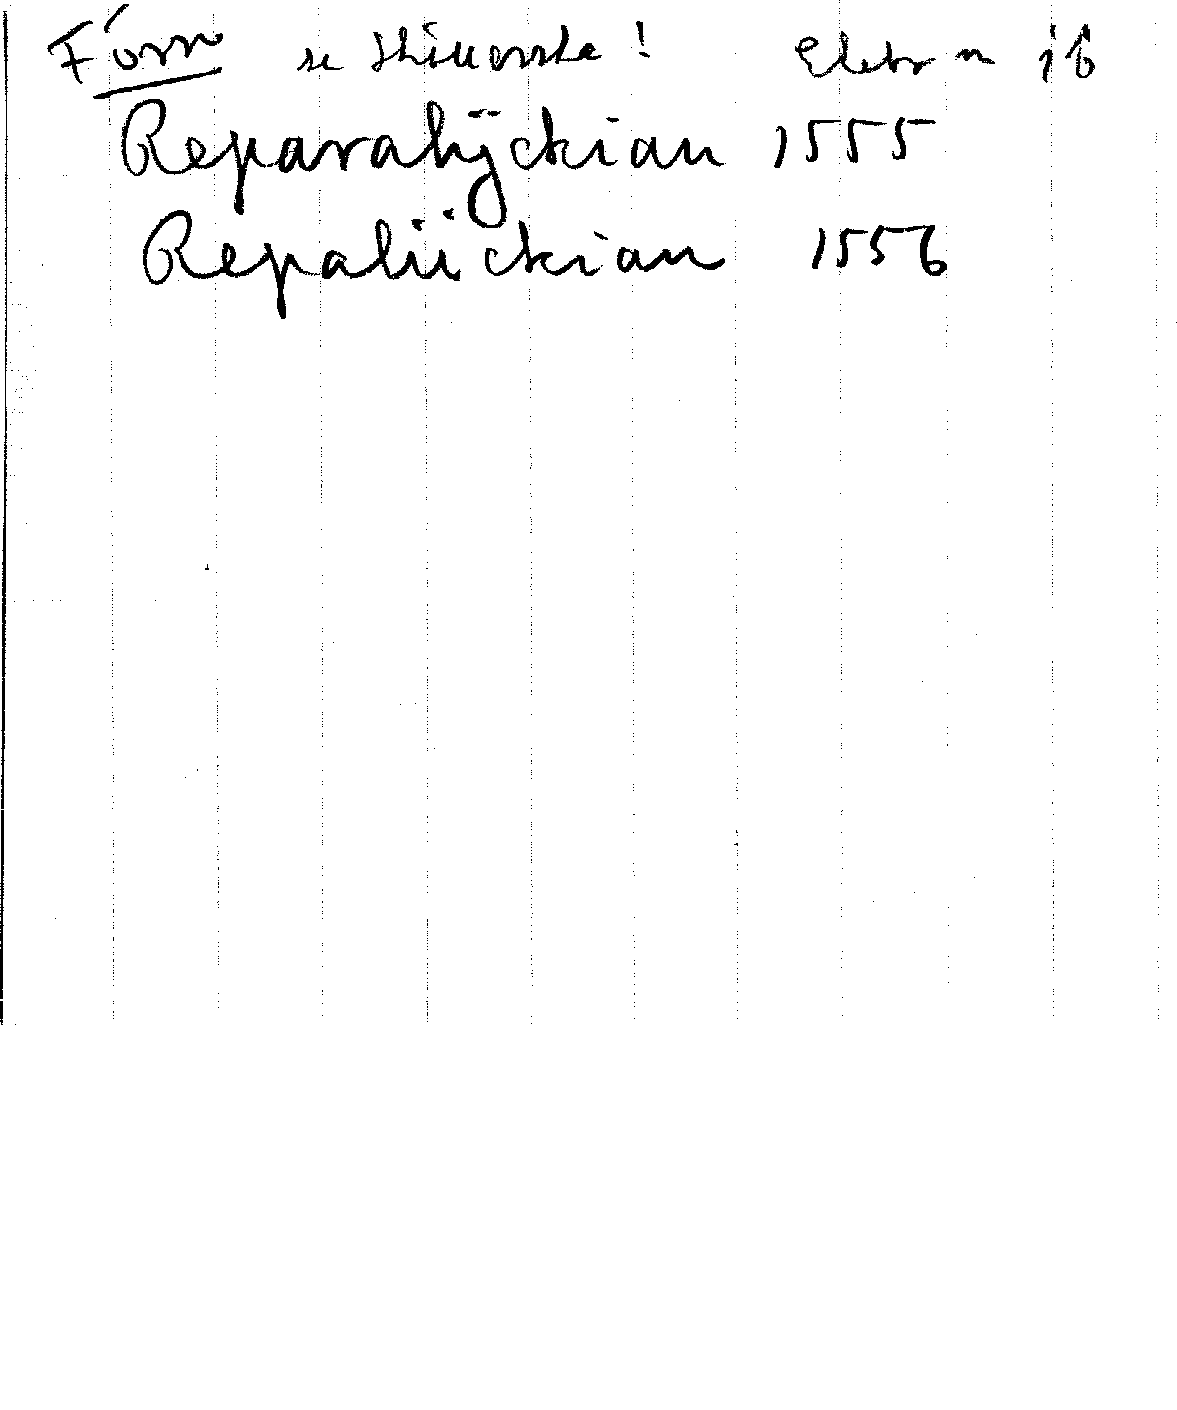 Form se Skiuorska! Elebr n
Reparalÿckian 1555
Repaliickian 1556